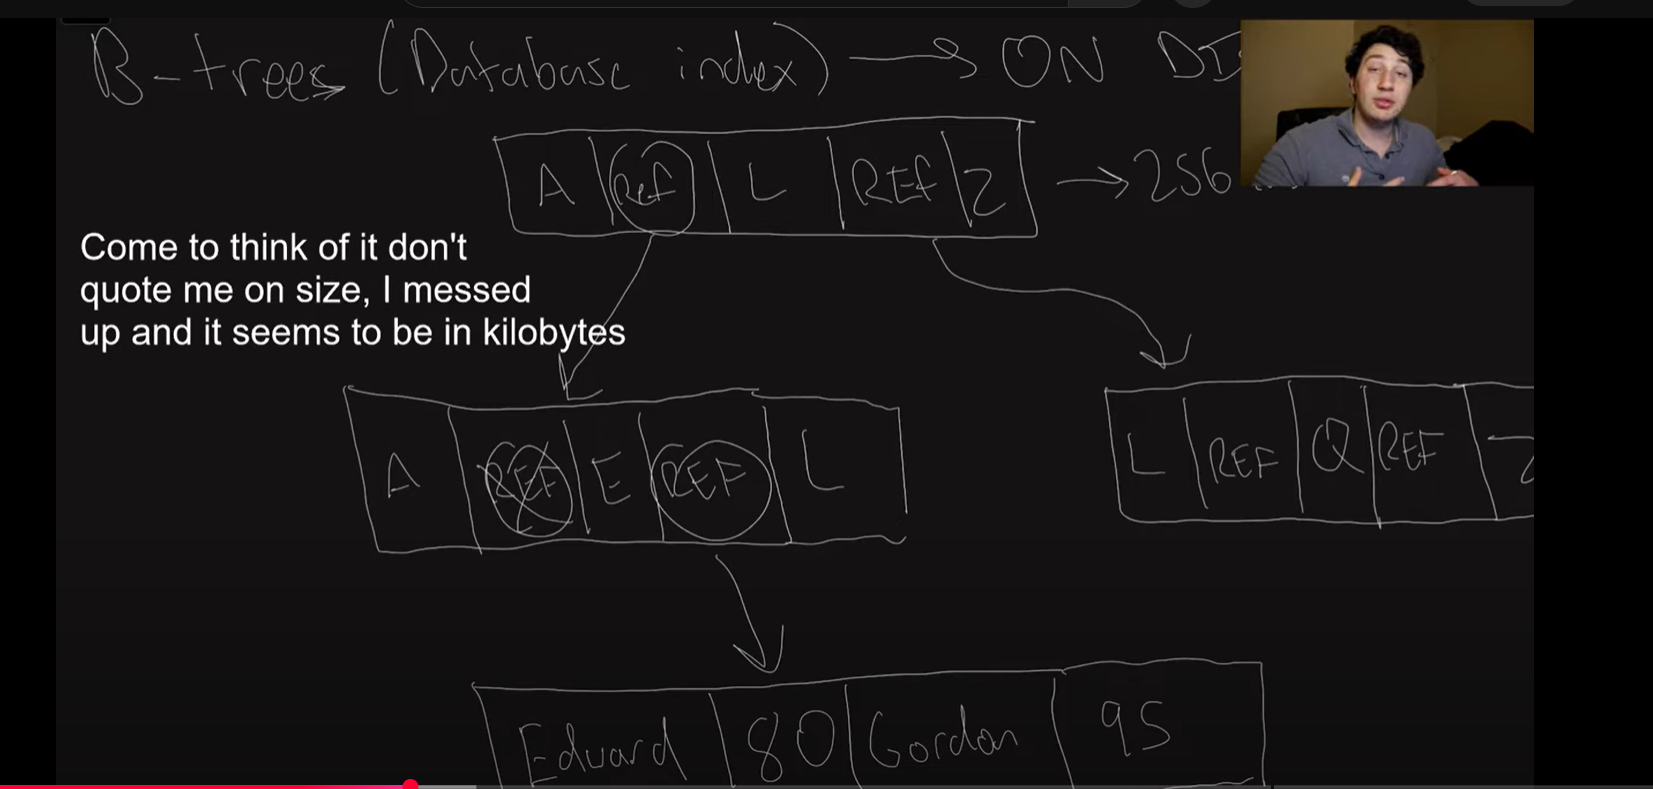 B-trees (Database index) → ON DI
A Ref L REF Z → 256
Come to think of it don't
quote me on size, I messed
up and it seems to be in kilobytes
A REF E REF L
L REF Q REF Z
Edward 80 Gordon 95